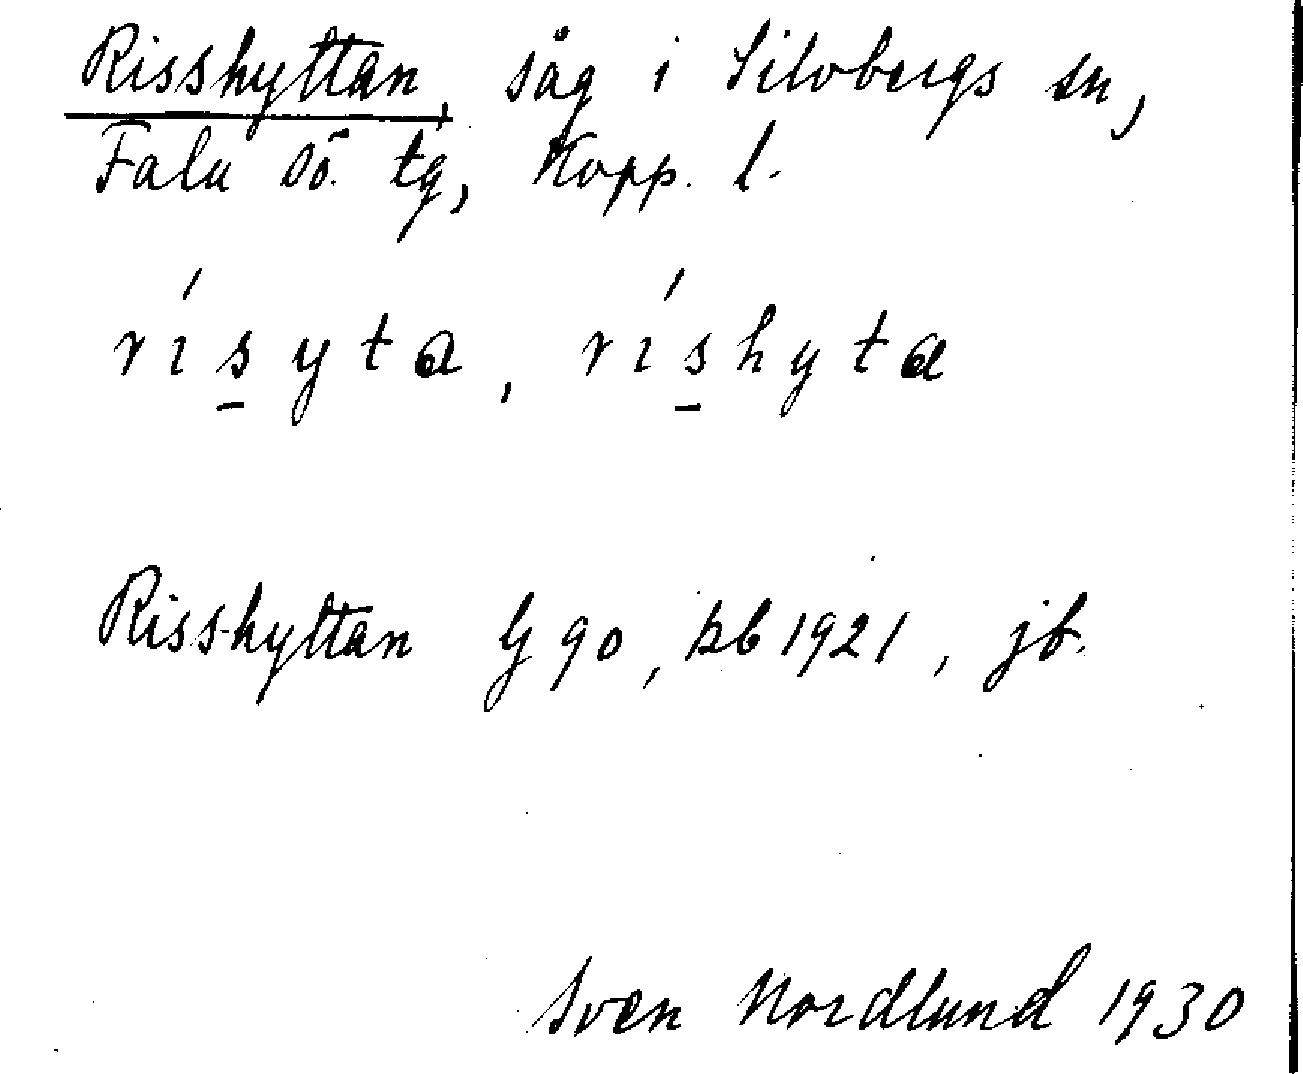 Risshyttan, såg i Silvbergs sn,
Falu sö. tg, Kopp. l.
rísyta, ríshyta
Risshyttan G 90, kb 1921, jb.
Sven Nordlund 1930